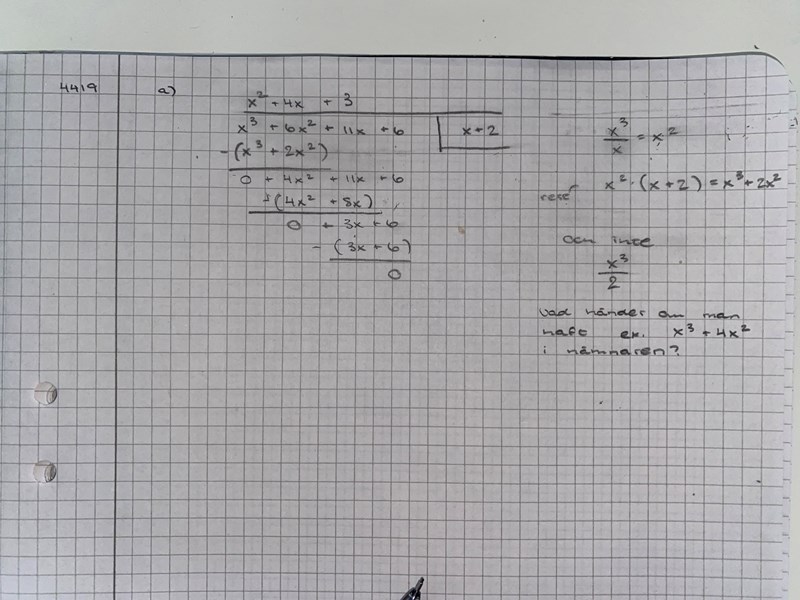 4419
a)
x² + 4x + 3
x³ + 6x² + 11x + 6 x + 2
-(x³ + 2x²)
0 + 4x² + 11x + 6
-(4x² + 8x)
0 + 3x + 6
- (3x + 6)
0
x³/x = x²
x² · (x + 2) = x³ + 2x²
och inte
x³/2
vad händer om man
haft ex. x³ + 4x²
i nämnaren?